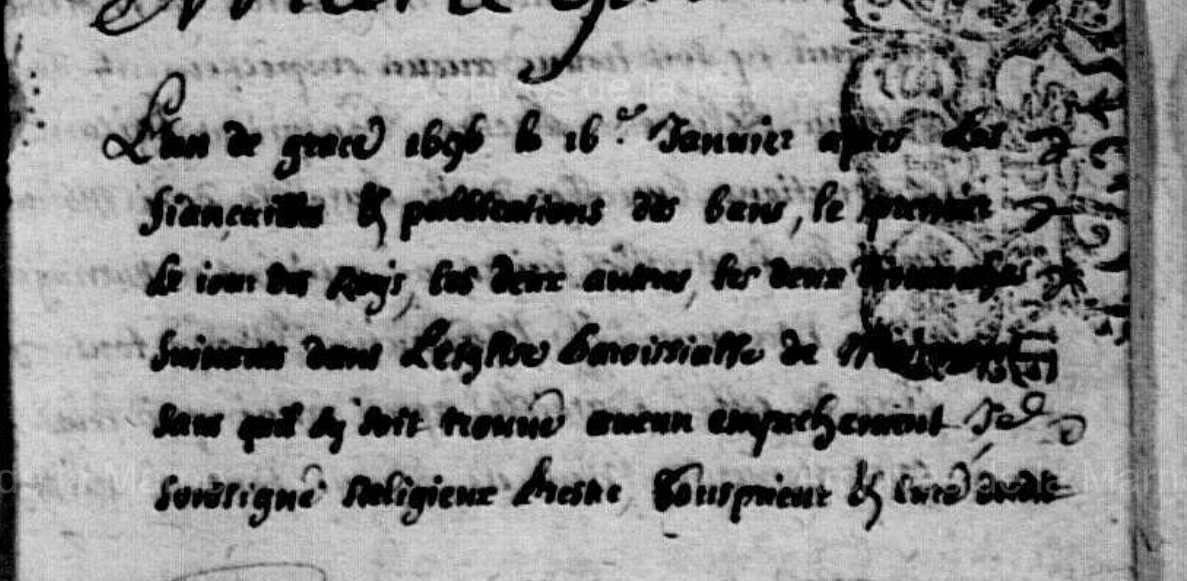 L'an de grace 1696 le 16e Januier apres les
fiançailles & publications des bans, le premier
le iour des Roys, les deux autres, les deux dimanches
suiuants dans Leglise Paroissialle de
sans quil sy soit trouué aucun empeschement Je
soussigné Religieux Prestre Sousprieur & curé dudit